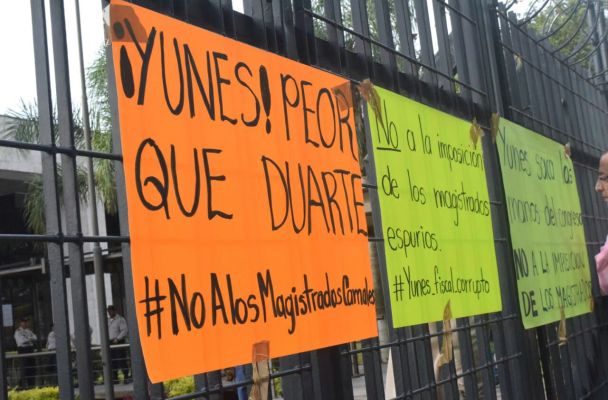 ¡YUNES! PEOR
QUE DUARTE
#NoAlosMagistradosCarnales
NO a la imposición
de los magistrados
espurios.
#Yunes_fiscal.corrupto
Yunes saca las
manos del congreso
NO A LA IMPOSICION
DE LOS MAGISTRA